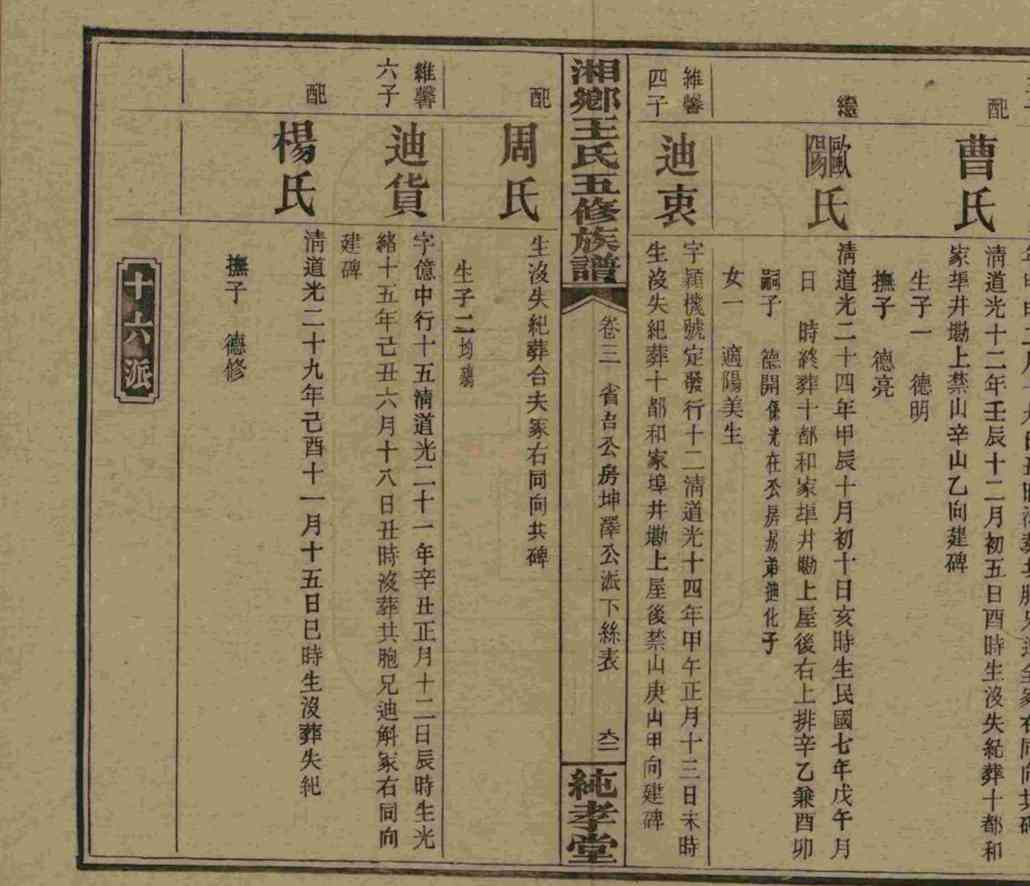 配
曹氏
清道光十二年壬辰十二月初五日酉時生沒失紀葬十都和
家埠井墈上禁山辛山乙向建碑
生子一 德明
撫子 德亮
繼
歐陽氏
清道光二十四年甲辰十月初十日亥時生民國七年戊午年月
日 時終葬十都和家埠井墈上屋後右上排辛乙兼酉卯
嗣子 德開
女一 適陽美生
維馨
四子
迪衷
字穎機號定發行十二清道光十四年甲午正月十三日未時
生沒失紀葬十都和家埠井墈上屋後禁山庚山甲向建碑
湘鄉王氏五修族譜
卷三 省吉公房坤澤公派下絲表
六二
純孝堂
配
周氏
生沒失紀葬合夫冢右同向共碑
生子二均殤
維馨
六子
迪貨
字億中行十五清道光二十一年辛丑正月十二日辰時生光
緒十五年己丑六月十八日丑時沒葬共胞兄迪斛冢右同向
建碑
配
楊氏
清道光二十九年己酉十一月十五日巳時生沒葬失紀
撫子 德修
十六派